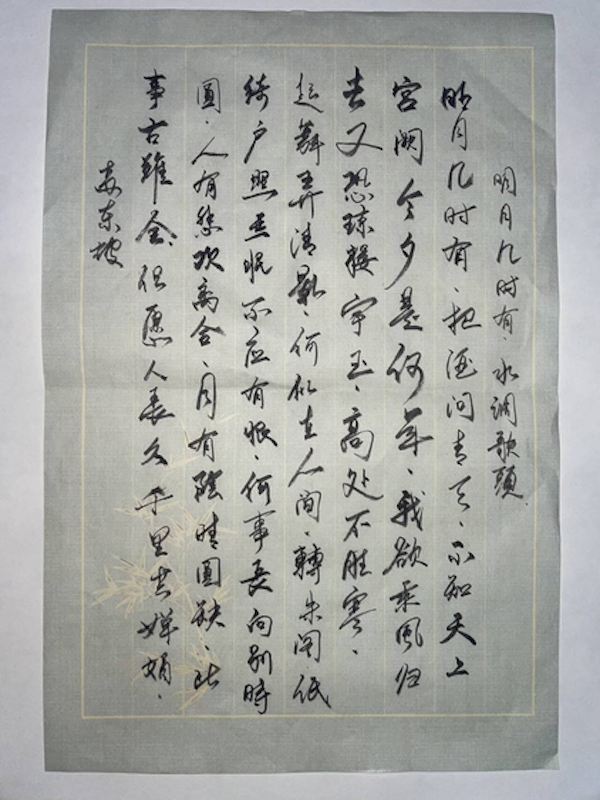 明月几时有、水调歌頭
明月几时有、把酒问青天、不知天上
宫阙今夕是何年、我欲乘风归
去又恐琼楼宇玉、高处不胜寒、
起舞弄清影、何似在人间、轉朱阁低
绮户照无眠不应有恨、何事長向别時
圆、人有悲欢离合、月有陰晴圆缺、此
事古難全、但愿人長久千里共婵娟、
苏东坡